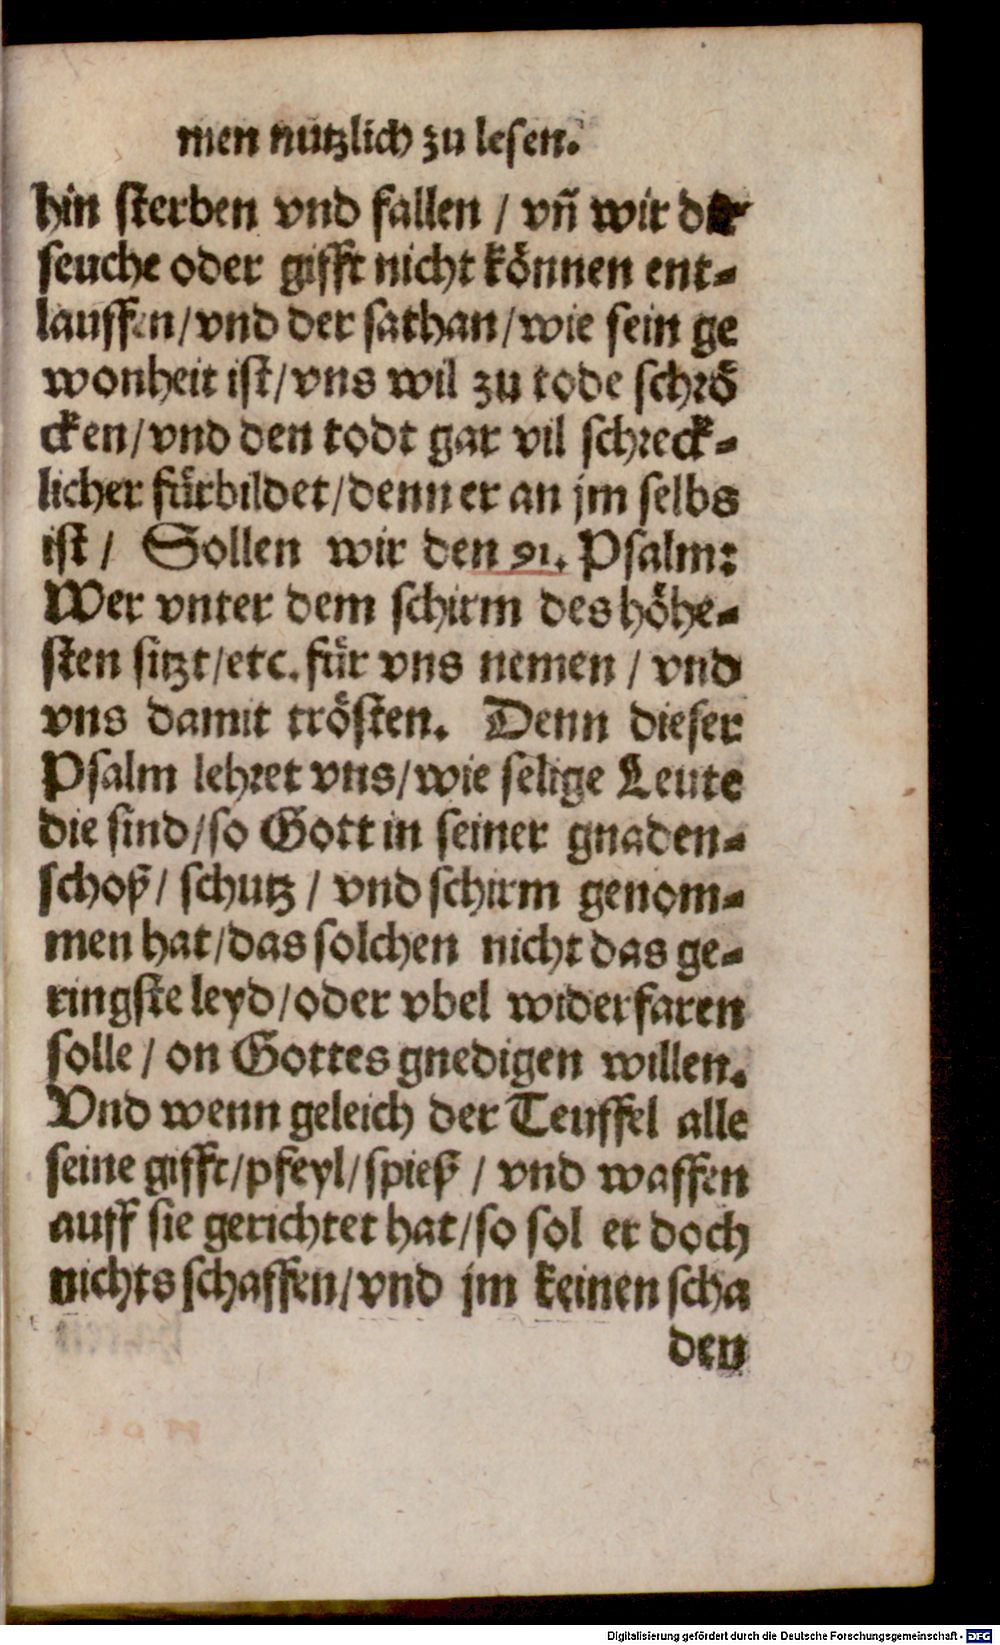 men nutzlich zu lesen.
hin sterben vnd fallen / vñ wir der
seuche oder gifft nicht können ent-
lauffen/vnd der sathan/wie sein ge
wonheit ist/vns wil zu tode schrö
cken/vnd den todt gar vil schreck-
licher fürbildet/denn er an jm selbs
ist / Sollen wir den 91. Psalm:
Wer vnter dem schirm des höhe-
sten sitzt/etc. für vns nemen / vnd
vns damit trösten. Denn dieser
Psalm lehret vns/wie selige Leute
die sind/so Gott in seiner gnaden-
schoß/ schutz / vnd schirm genom-
men hat/das solchen nicht das ge-
ringste leyd/oder vbel widerfaren
solle / on Gottes gnedigen willen.
Vnd wenn geleich der Teuffel alle
seine gifft/pfeyl/spieß / vnd waffen
auff sie gerichtet hat/so sol er doch
nichts schaffen/vnd jm keinen scha
den
Digitalisierung gefördert durch die Deutsche Forschungsgemeinschaft - DFG